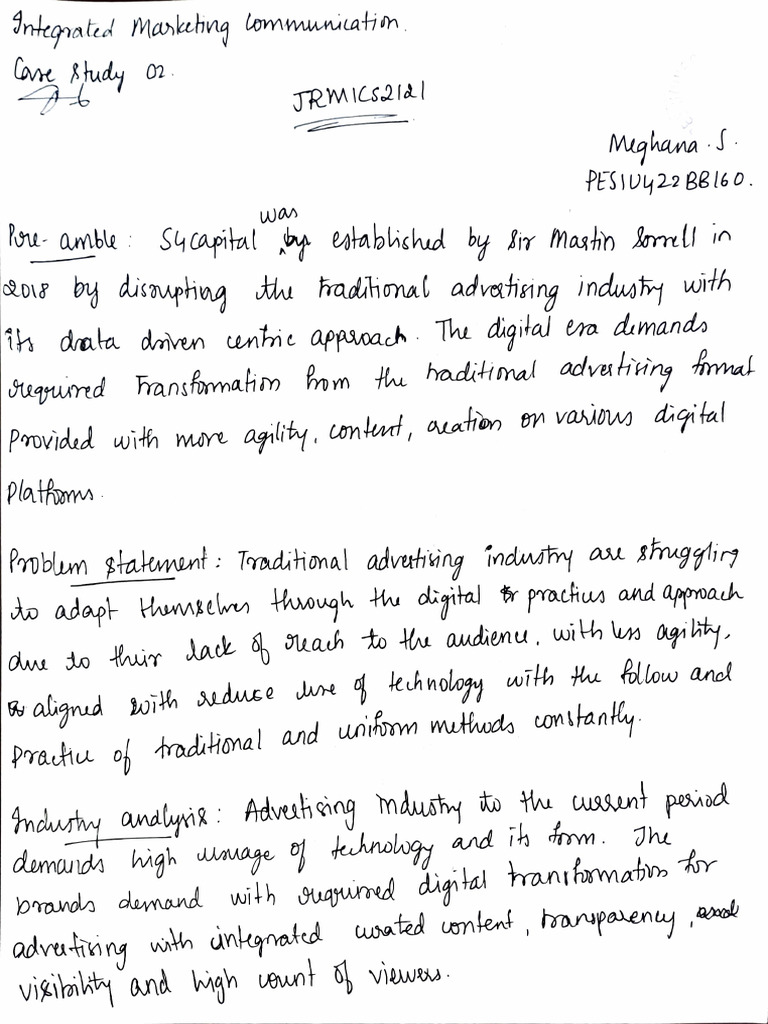 Integrated Marketing Communication.
Case Study 02.
JRMICS2121
Meghana . S.
PES1U422BB160.
was
Pre-amble : S4capital by established by Sir Martin Sorrell in
2018 by disrupting the traditional advertising industry with
its data driven centric approach. The digital era demands
required Transformation from the traditional advertising format
Provided with more agility, content, creation on various digital
Platforms.
Problem statement : Traditional advertising industry are struggling
to adapt themselves through the digital practices and approach
due to their lack of reach to the audience, with less agility,
aligned with reduce use of technology with the follow and
Practice of traditional and uniform methods constantly.
Industry analysis : Advertising industry to the current period
demands high usuage of technology and its form. The
brands demand with required digital transformation for
advertising with integrated curated content, transparency,
visibility and high count of viewers.